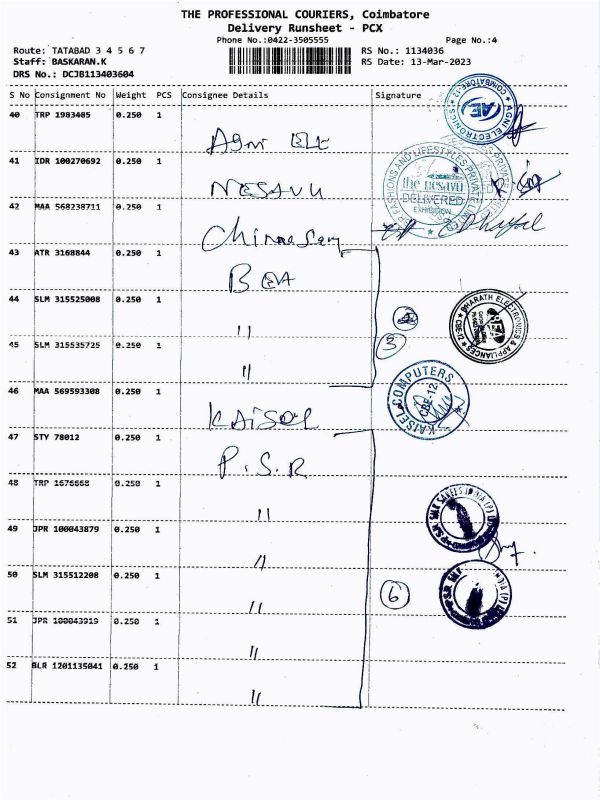 THE PROFESSIONAL COURIERS, Coimbatore
Delivery Runsheet - PCX
Phone No.:0422-3505555
Page No.:4
Route: TATABAD 3 4 5 6 7
RS No.: 1134036
Staff: BASKARAN.K
RS Date: 13-Mar-2023
DRS No.: DCJB113403604
S No Consignment No Weight PCS Consignee Details Signature
40 TRP 1983405 0.250 1
Agni ELE
AGNI ELECTRONICS COIMBATORE-12
AE
41 IDR 100270692 0.250 1
NESAVU
the nesavu
DELIVERED
EXHIBITION
42 MAA 568238711 0.250 1
Chinnasamy
43 ATR 3168844 0.250 1
BEA
44 SLM 315525008 0.250 1
"
BHARATH ELECTRONICS & APPLIANCES
45 SLM 315535725 0.250 1
3
"
46 MAA 569593308 0.250 1
KAISEL
KAISEL COMPUTERS
CBE-12
47 STY 78012 0.250 1
P.S.R
48 TRP 1676668 0.250 1
"
49 JPR 100043879 0.250 1
"
50 SLM 315512208 0.250 1
6
"
51 JPR 100043919 0.250 1
"
52 BLR 1201135041 0.250 1
"